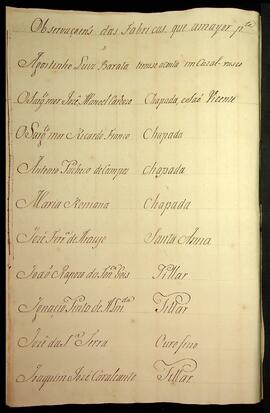 Observaçoens das Fabricas que amayor p.te
Agostinho Luiz Barata
O Sarg.to mor José Manoel Cardozo Chapada, e S.to Vicente
O Sarg.to mor Ricardo Franco Chapada
Antonio Pacheco de Campos Chapada
Maria Romana Chapada
José Ferr.a de Araujo Santa Anna
João Raposo Pillar
Ignacio Pinto de Pillar
José da S.a Serra Ouro fino
Joaquim José Cavalcante Pillar